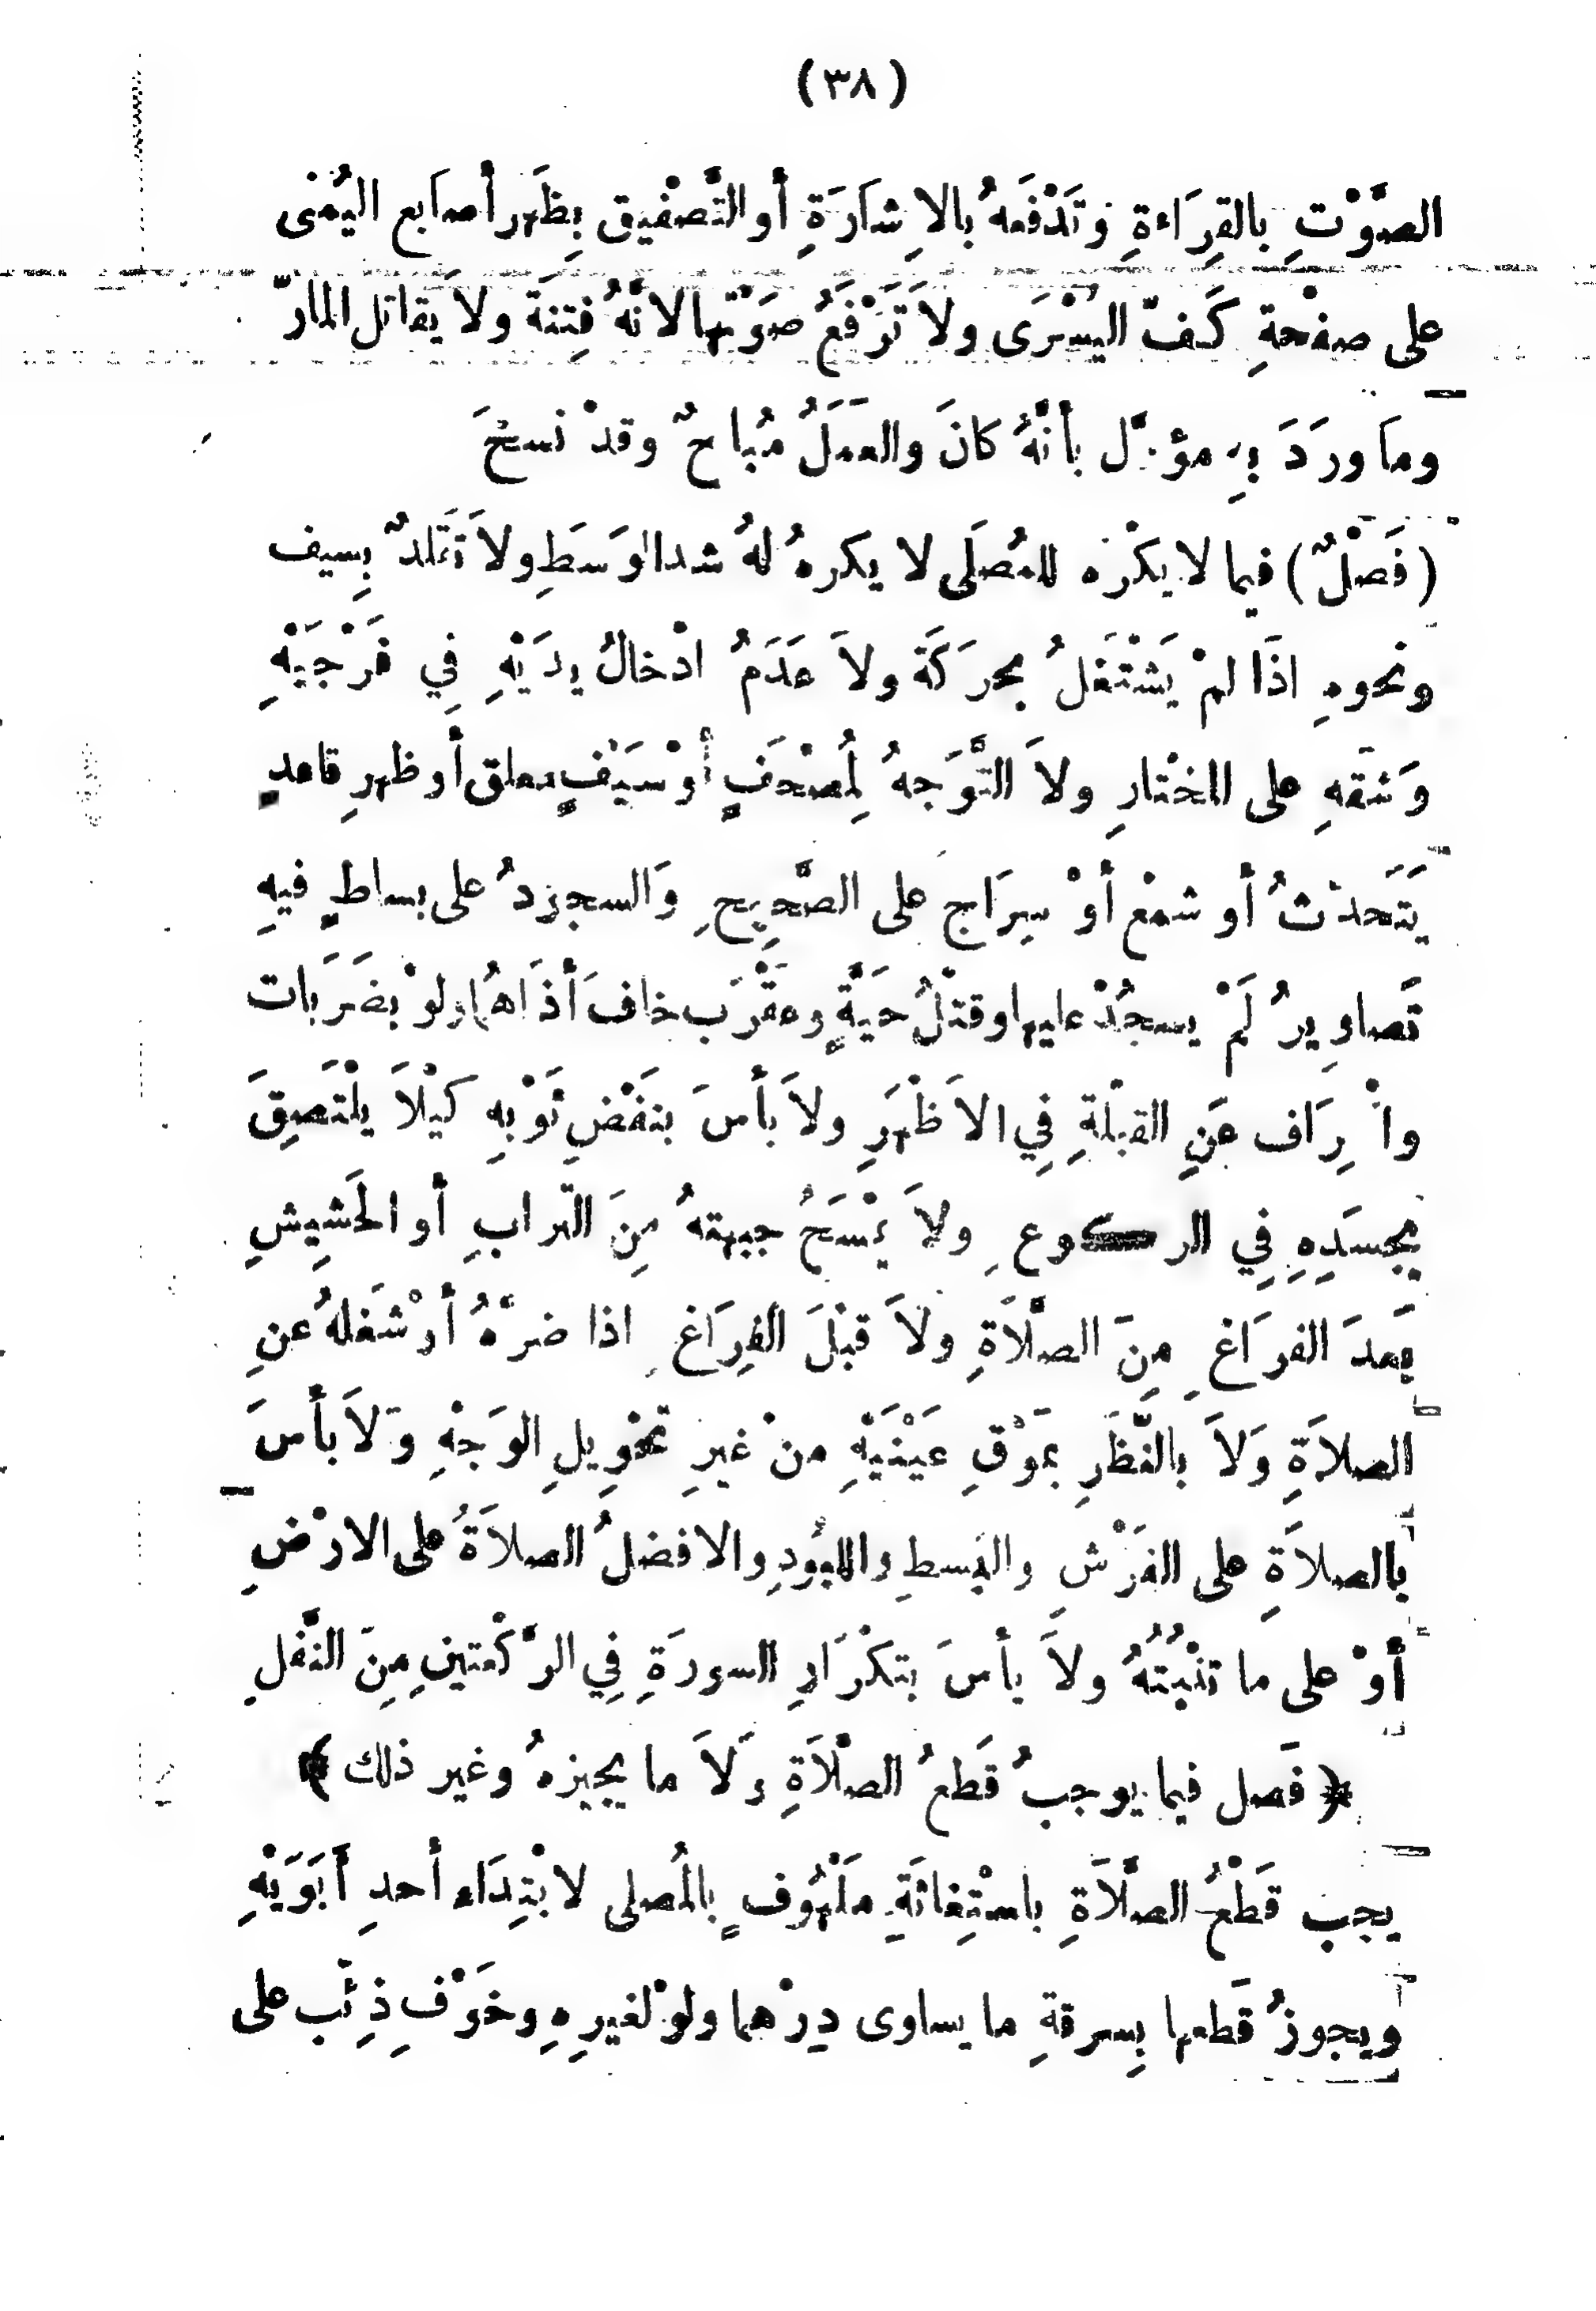 (٣٨)
الصَّوْتِ بِالقِرَاءةِ وَتَدْفَعهُ بالاِشارَةِ أو التَّصفْيق بِظَهر أصابع اليُمنى
على صفْحةِ كَفّ اليُسْرَى ولاَ تَرْفَعُ صَوْتَها لانَّهُ فِتنَة ولاَ يقاتل المارّ
وما ورَدَ بهِ مؤوَّل بأنَّهُ كانَ والعمَلُ مُباحٌ وقدْ نسخَ
(فَصْلٌ) فيما لا يكْره للمُصَلى لا يكرهُ لهُ شد الوَسَطِ ولاَ تَقَلدٌ بِسيف
ونحوهِ اذَا لمْ يَشْتَغلُ بحرَكَة ولاَ عَدَمُ ادْخالُ يدَيْهِ فِي فَرْجيَهْ
وَشقهِ على المخْتارِ ولاَ التَّوَجهُ لِمُصْحَفٍ أوْ سَيْفٍ معلق أو ظهرِ قاعدٍ
يَتَحَدثُ أو شمْع أوْ سِرَاج على الصَّحِيحِ وَالسجودُ على بساطٍ فيهِ
تَصاوِيرُ لَمْ يسجُدْ عليها وقتْلُ حيَّةٍ وعقْرَب خافَ أذَاهُما ولوْ بضَرَبات
وانحِرَاف عَنِ القبْلةِ فِي الاَظْهرِ ولاَ بأسَ بنَفْضِ ثَوْبهِ كيْلاَ يلْتَصِقَ
بجسَدِهِ فِي الركوعِ ولاَ بمسْحُ جبهتهُ مِنَ التّرابِ أو الحَشِيشِ
بَعدَ الفرَاغِ مِنَ الصَّلاَةِ ولاَ قبْلَ الفِرَاغِ اذا ضرَّهُ أوْ شَغلهُ عنِ
الصلاَةِ وَلاَ بالنَّظَرِ بموْقِ عَيْنَيْهِ منْ غيرِ تحْوِيلِ الوَجْهِ وَلاَ بأسَ
بالصلاَةِ على الفرْشِ والبسطِ واللبُودِ والافضلُ الصلاَةُ على الارْضِ
أوْ على ما تنْبُتُهُ ولاَ بأسَ بتكْرَارِ السورَةِ فِي الرَّكْعتينِ مِنَ النَّفلِ
﴿ فَصل فيما يوجبُ قَطعُ الصلاَةِ وَلاَ ما يجيزهُ وغير ذلك ﴾
يجب قَطْعُ الصَّلاَةِ باسْتِغاثةِ مَلْهُوفٍ بالمُصلى لا بنْدَاء أحدِ أَبَوَيْهِ
ويجوزُ قَطعها بِسرقةِ ما يساوى دِرْهما ولوْ لغيرِهِ وخَوْفِ ذِئب على